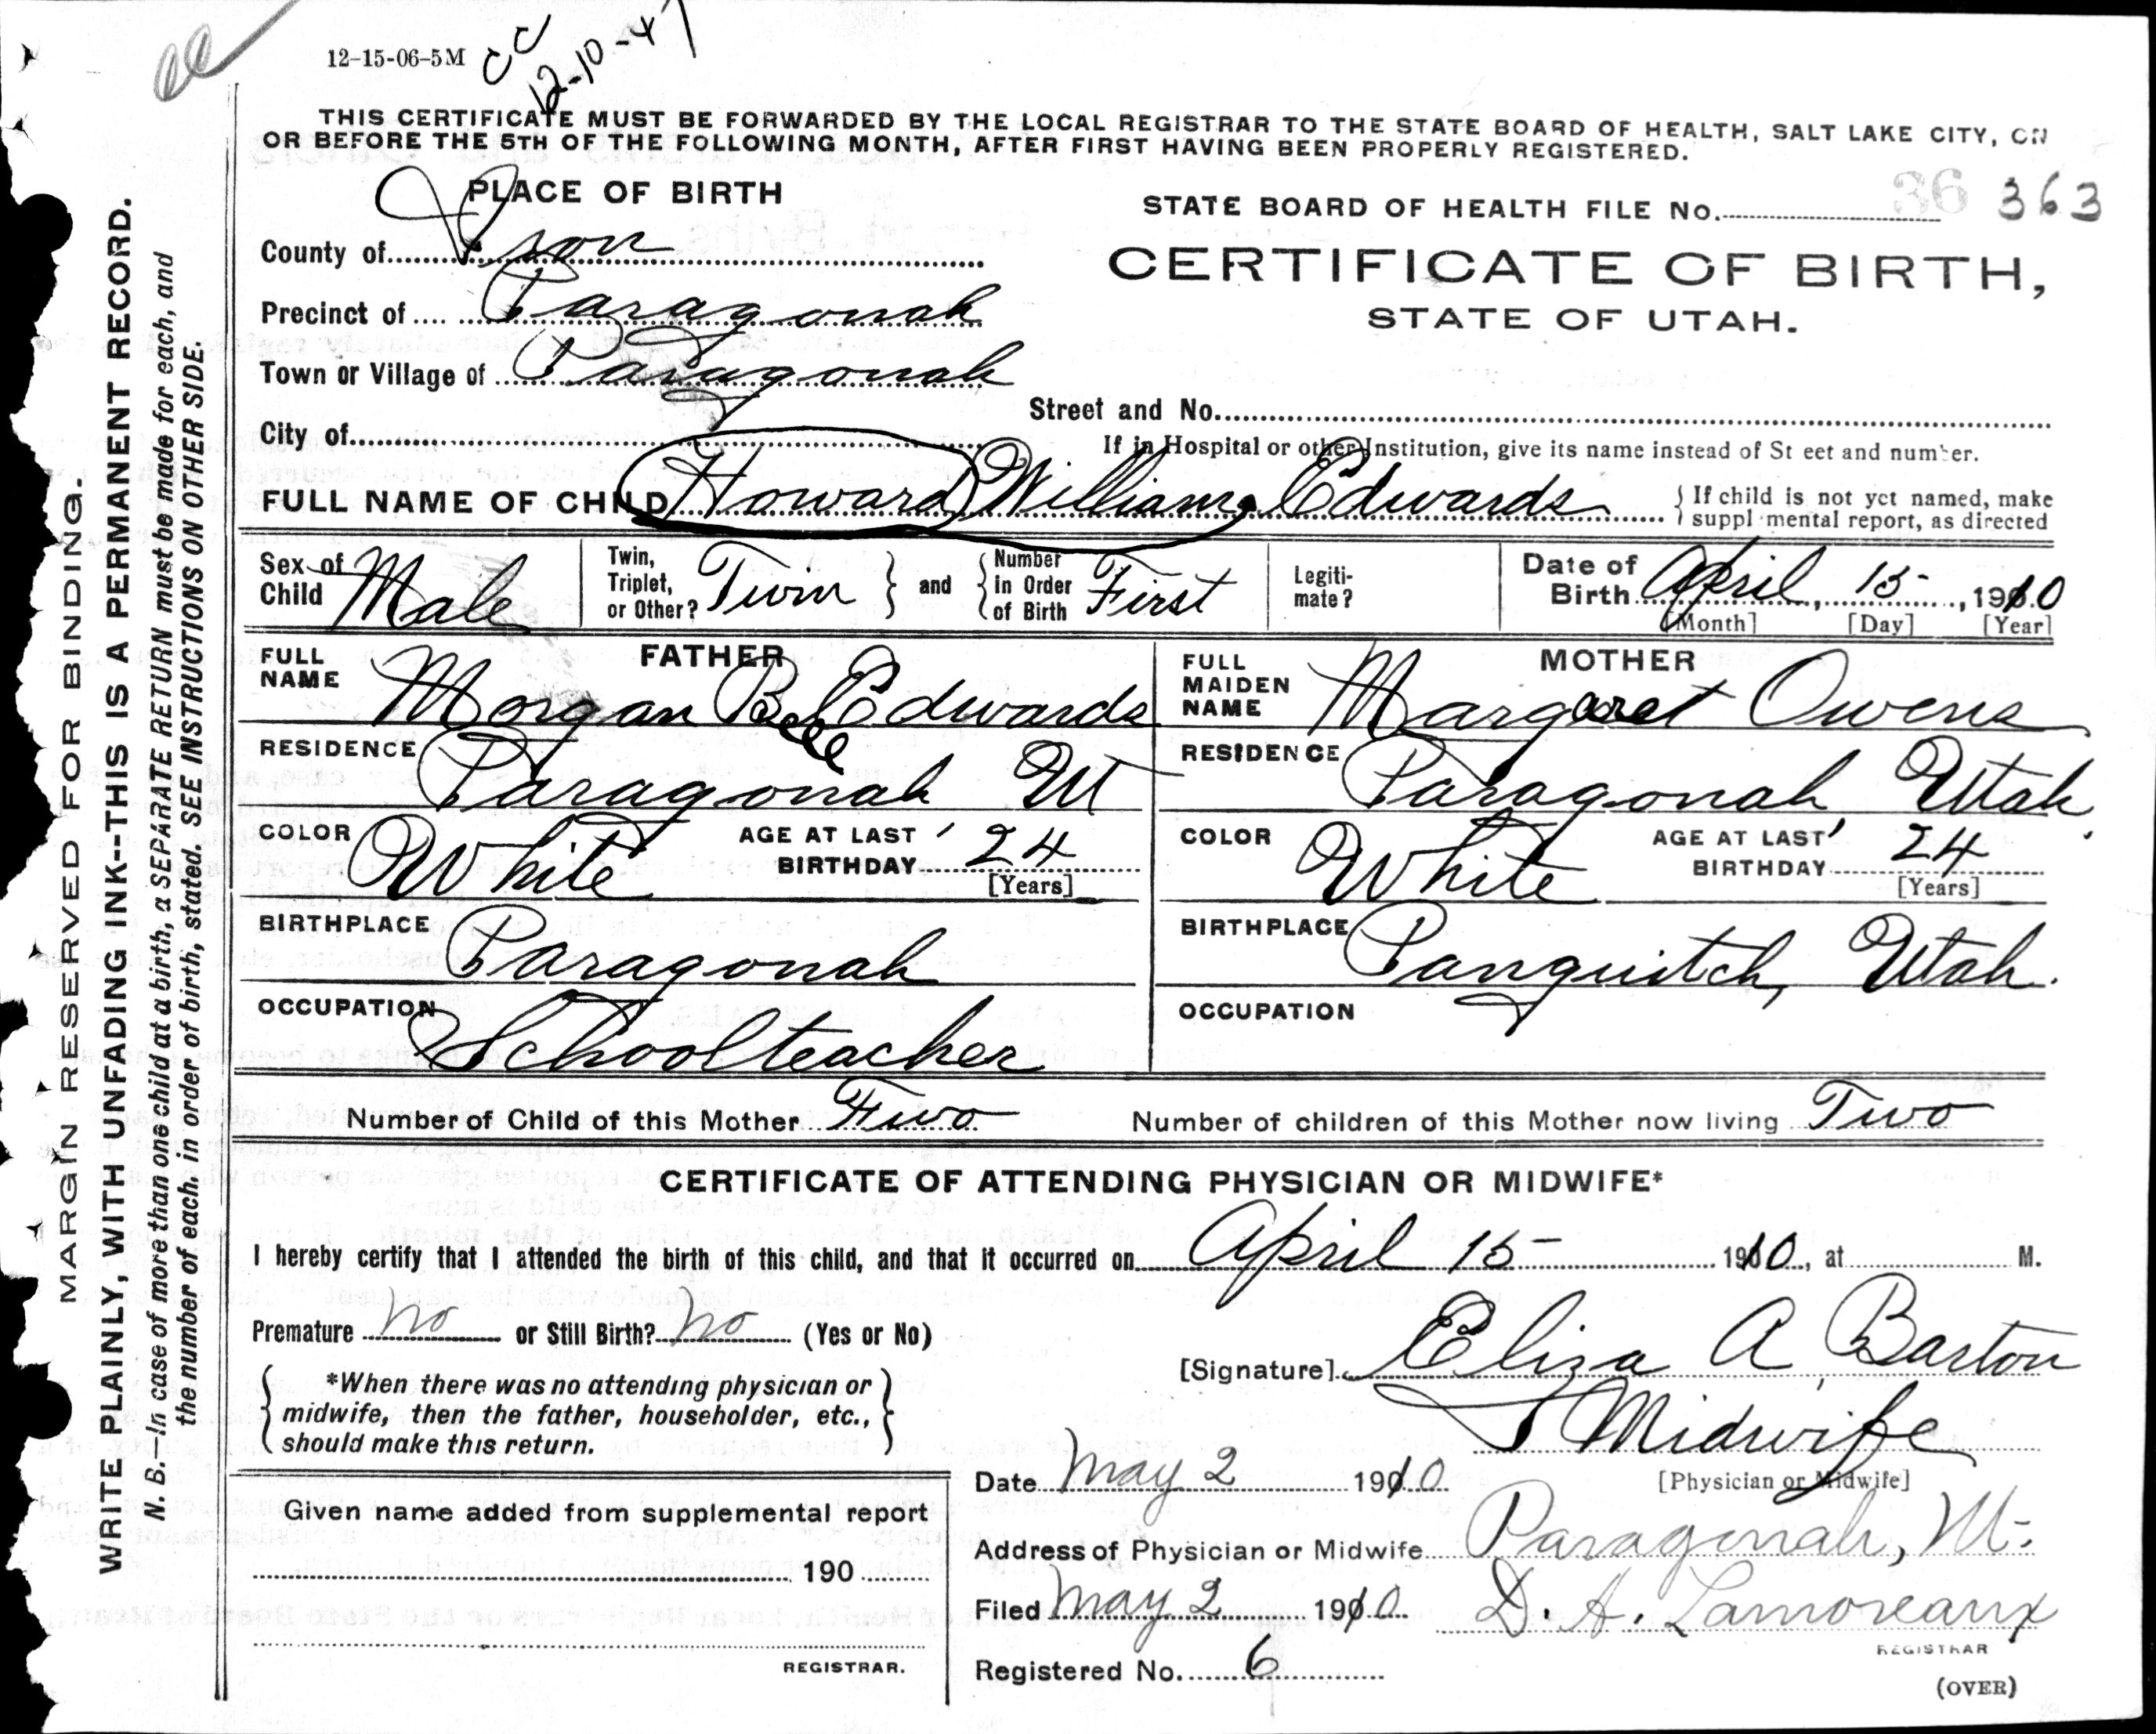 12-15-06-5M
CC
12-10-47
THIS CERTIFICATE MUST BE FORWARDED BY THE LOCAL REGISTRAR TO THE STATE BOARD OF HEALTH, SALT LAKE CITY, ON
OR BEFORE THE 5TH OF THE FOLLOWING MONTH, AFTER FIRST HAVING BEEN PROPERLY REGISTERED.
PLACE OF BIRTH
STATE BOARD OF HEALTH FILE No. 36 363
County of Iron
CERTIFICATE OF BIRTH,
Precinct of Paragonah
STATE OF UTAH.
Town or Village of Paragonah
Street and No.
City of
If in Hospital or other Institution, give its name instead of St eet and number.
FULL NAME OF CHILD Howard William Edwards
{ If child is not yet named, make
suppl mental report, as directed
Sex of Child Male
Twin, Triplet, or Other? Twin } and { Number in Order of Birth First
Legiti-mate?
Date of Birth April 15, 1910
[Month] [Day] [Year]
FATHER
FULL NAME Morgan Bell Edwards
RESIDENCE Paragonah Ut
COLOR White AGE AT LAST BIRTHDAY 24
[Years]
BIRTHPLACE Paragonah
OCCUPATION Schoolteacher
MOTHER
FULL MAIDEN NAME Margaret Owens
RESIDENCE Paragonah, Utah
COLOR White AGE AT LAST BIRTHDAY 24
[Years]
BIRTHPLACE Panguitch, Utah.
OCCUPATION
Number of Child of this Mother Two Number of children of this Mother now living Two
CERTIFICATE OF ATTENDING PHYSICIAN OR MIDWIFE*
I hereby certify that I attended the birth of this child, and that it occurred on April 15 1910, at M.
Premature no or Still Birth? no (Yes or No)
[Signature] Eliza A Barton
*When there was no attending physician or
midwife, then the father, householder, etc.,
should make this return.
Midwife
[Physician or Midwife]
Date May 2 1910
Given name added from supplemental report
Address of Physician or Midwife Paragonah, Ut.
190
Filed May 2 1910 D. A. Lamoreaux
REGISTRAR
REGISTRAR.
Registered No. 6
(OVER)
MARGIN RESERVED FOR BINDING.
WRITE PLAINLY, WITH UNFADING INK--THIS IS A PERMANENT RECORD.
N. B.—In case of more than one child at a birth, a SEPARATE RETURN must be made for each, and
the number of each, in order of birth, stated. SEE INSTRUCTIONS ON OTHER SIDE.